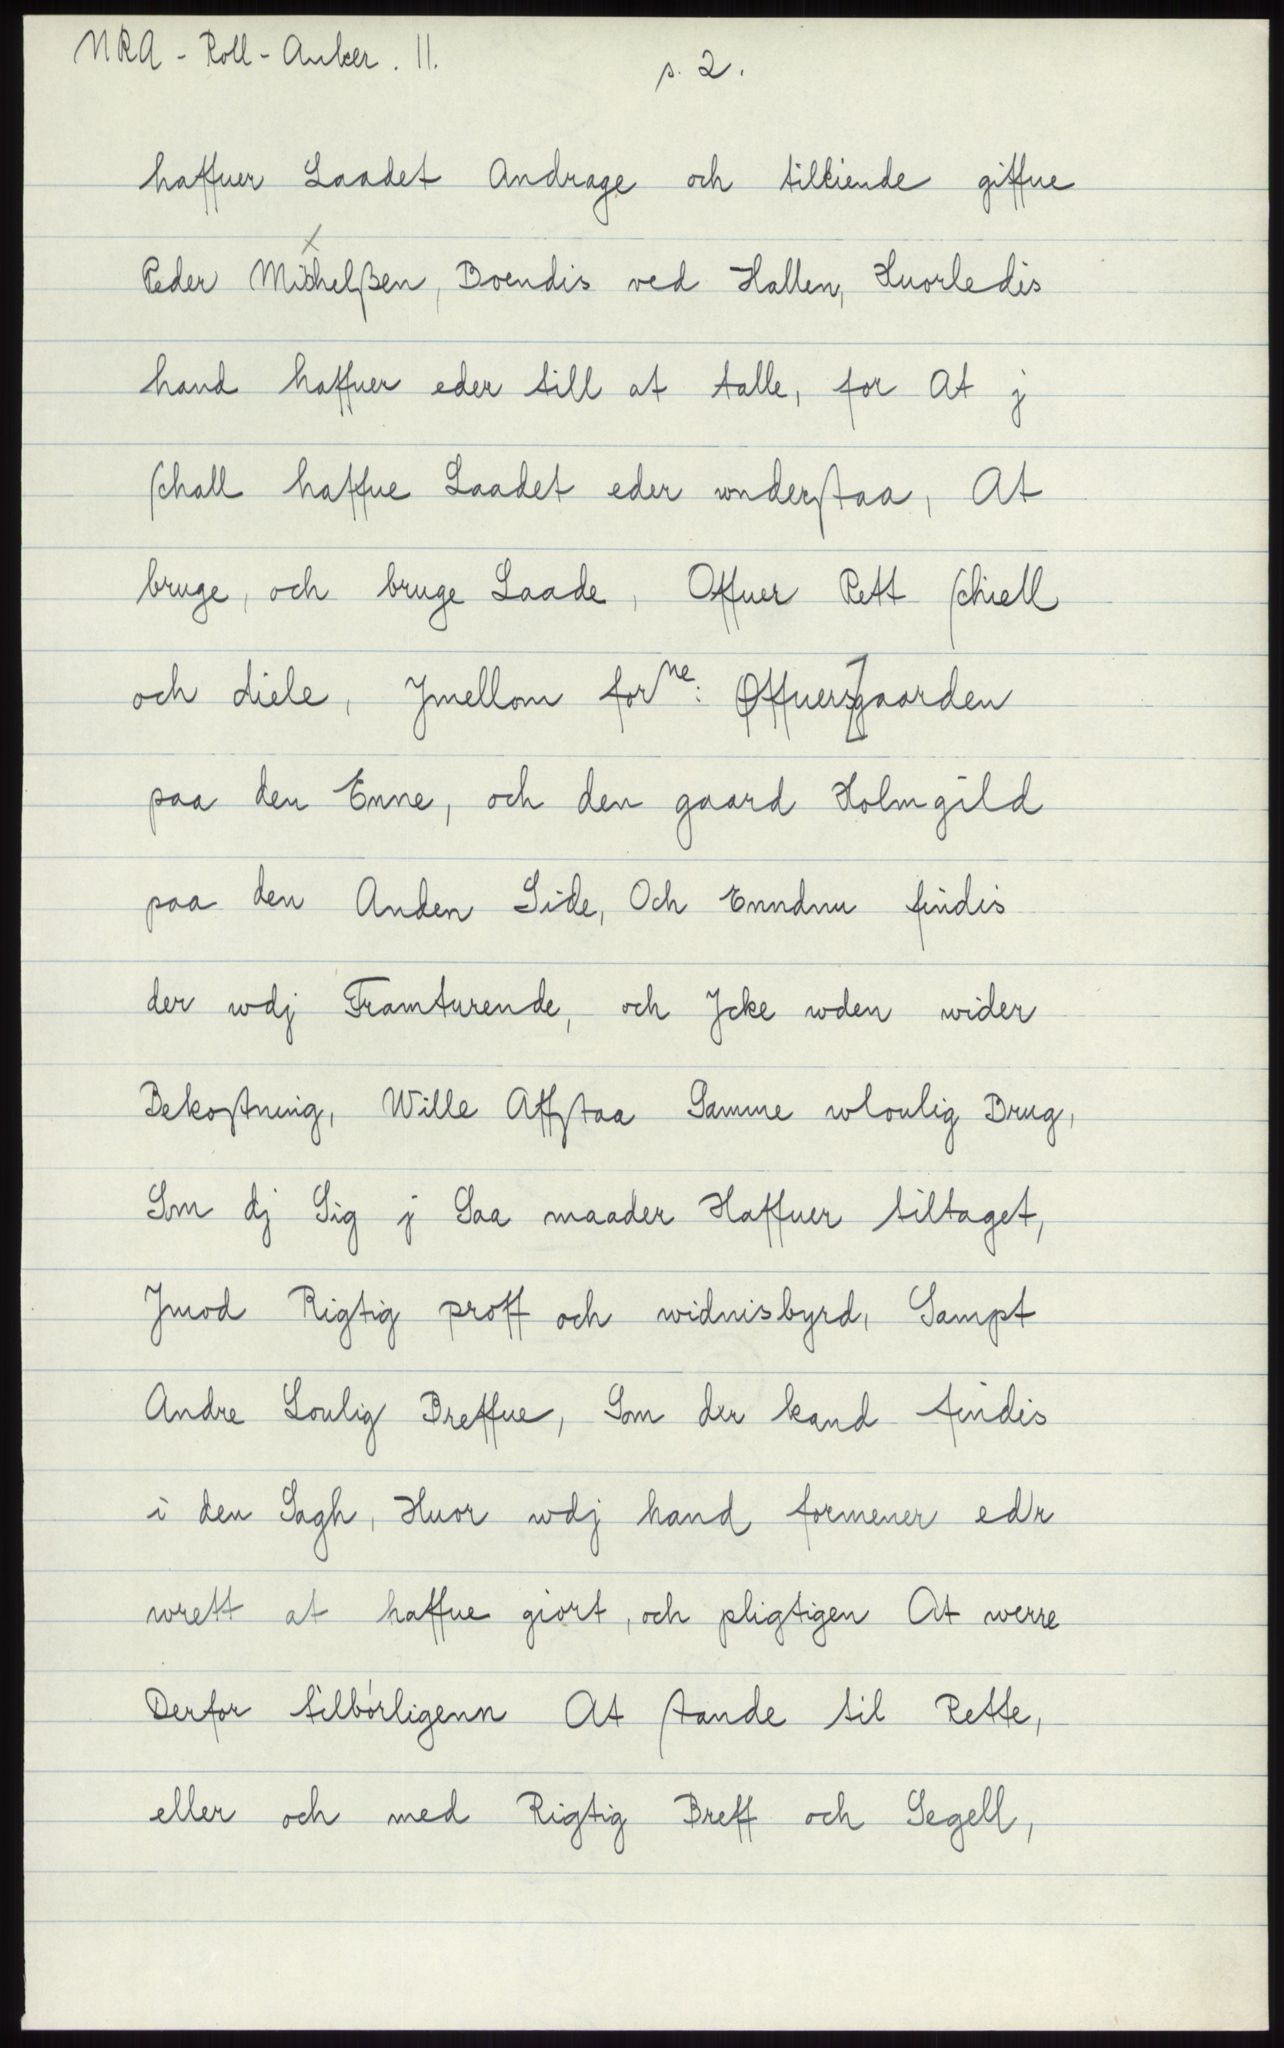 NRA - Roll - Anker. 11.
s. 2.
haffuer Laadet Andrage och tilkiende giffue
x
Peder Michelßen, Boendis ved Hallen, Huorledis
hand haffuer eder till at talle, for At j
schall haffue Laadet eder wnderstaa, At
bruge, och bruge Laade, Offuer Rett schiell
och diele, Jmellom forne: Øffuers]gaarden
paa den Enne, och den gaard Holmgild
paa den Anden Side, Och Enndnu findis
der wdj Framturende, och Jcke wden wider
Bekostning, Wille Affstaa Samme wloulig Brug,
Som dj Sig j Saa maader Haffuer tiltaget,
Jmod Rigtig proff och widnisbyrd, Sampt
Andre Loulig Breffue, Som der kand findis
i den Sagh, Huor wdj hand formener edr
wrett at haffue giort, och pligtigen At werre
Derfor tilbórligenn At stande til Rette,
eller och med Rigtig Breff och Segell,